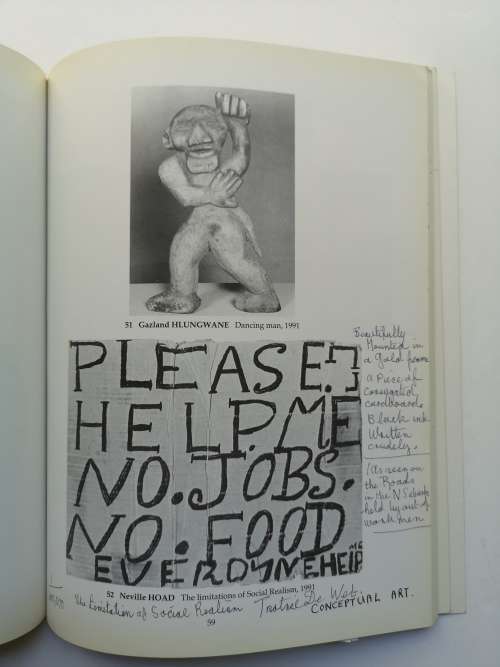 51 Gazland HLUNGWANE Dancing man, 1991
PLEASE.
HELP.ME
NO.JOBS.
NO.FOOD
EVERDYNE HELP ME
Beautifully
Mounted in
a gold frame
a piece of
corrugated
cardboard.
Black ink
Written
crudely.
(As seen on
the Roads
in the N Suburbs
held by out of
work men
52 Neville HOAD The limitations of Social Realism, 1991
The Limitation of Social Realism
CONCEPTUAL ART.
59